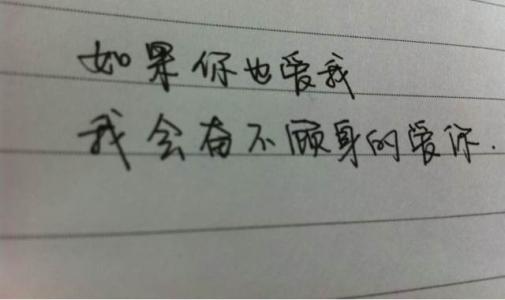 如果你也爱我
我会奋不顾身的爱你.